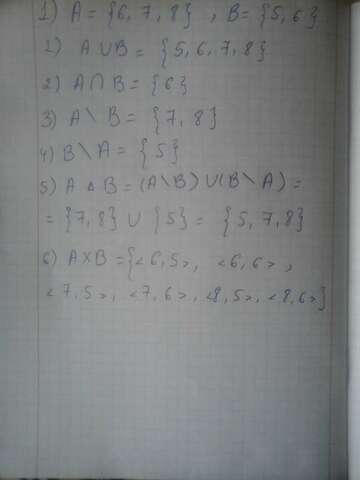 1) A = {6, 7, 8} , B = {5, 6}
1) A ∪ B = {5, 6, 7, 8}
2) A ∩ B = {6}
3) A \ B = {7, 8}
4) B \ A = {5}
5) A ∆ B = (A \ B) ∪ (B \ A) =
= {7, 8} ∪ {5} = {5, 7, 8}
6) A × B = {<6, 5>, <6, 6>,
<7, 5>, <7, 6>, <8, 5>, <8, 6>}